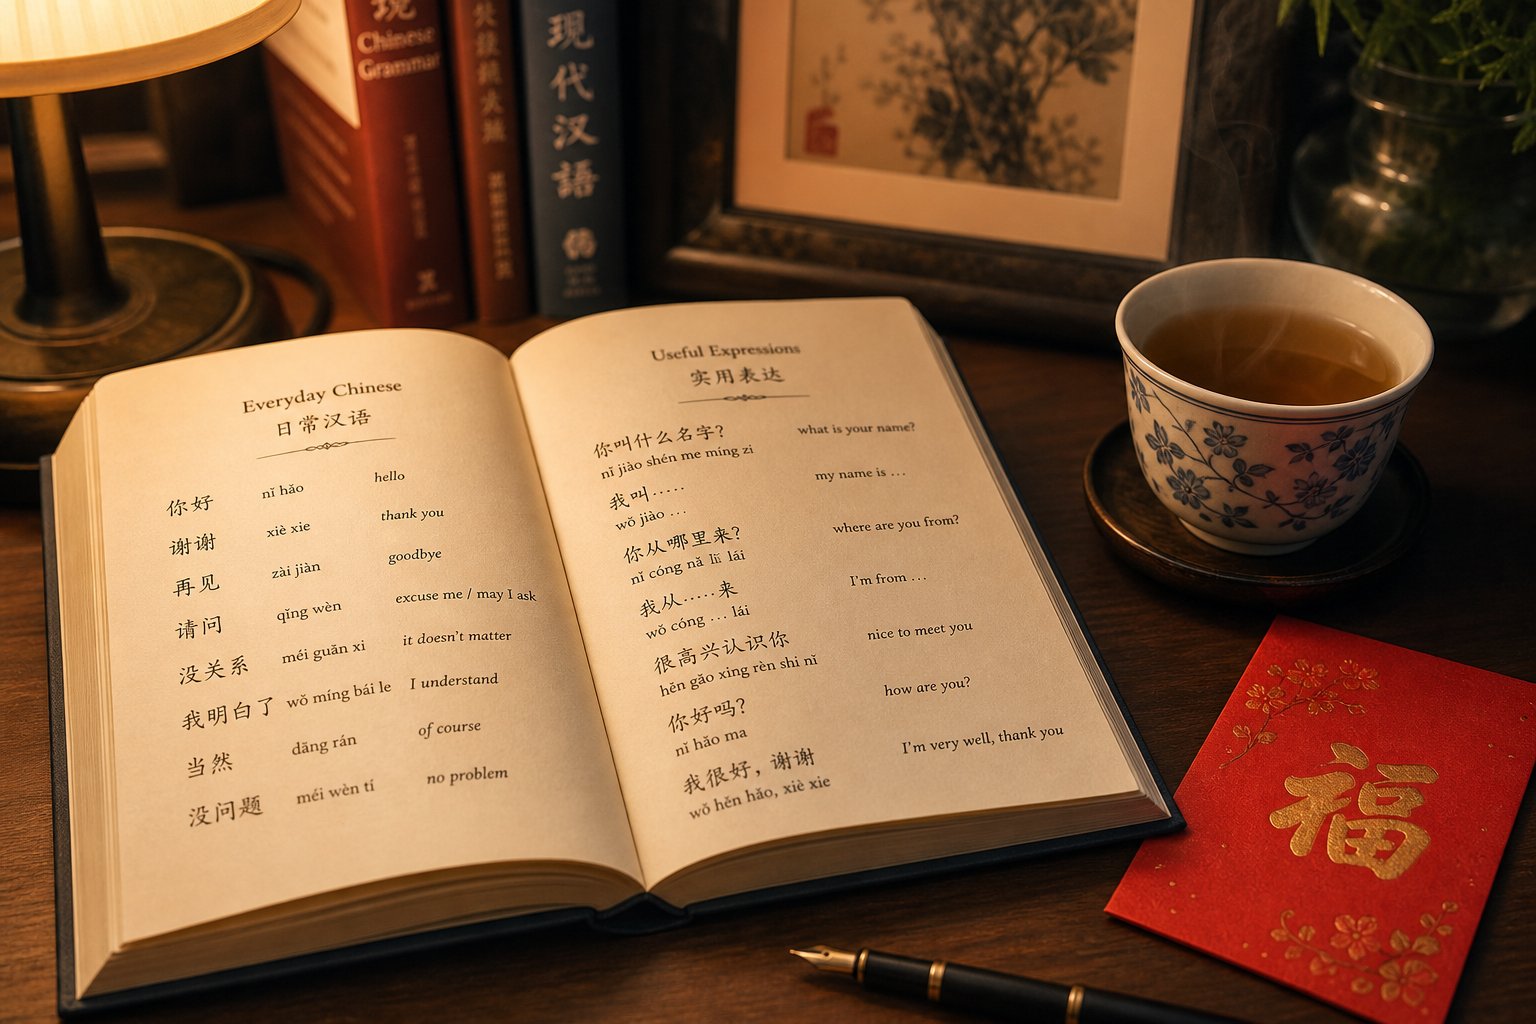 现
Chinese
Grammar
现代汉語
Everyday Chinese
日常汉语
你好 nǐ hǎo hello
谢谢 xiè xie thank you
再见 zài jiàn goodbye
请问 qǐng wèn excuse me / may I ask
没关系 méi guān xi it doesn't matter
我明白了 wǒ míng bái le I understand
当然 dāng rán of course
没问题 méi wèn tí no problem
Useful Expressions
实用表达
你叫什么名字? what is your name?
nǐ jiào shén me míng zi
我叫····· my name is ...
wǒ jiào ...
你从哪里来? where are you from?
nǐ cóng nǎ lǐ lái
我从·····来 I'm from ...
wǒ cóng ... lái
很高兴认识你 nice to meet you
hěn gāo xìng rèn shi nǐ
你好吗? how are you?
nǐ hǎo ma
我很好，谢谢 I'm very well, thank you
wǒ hěn hǎo, xiè xie
福